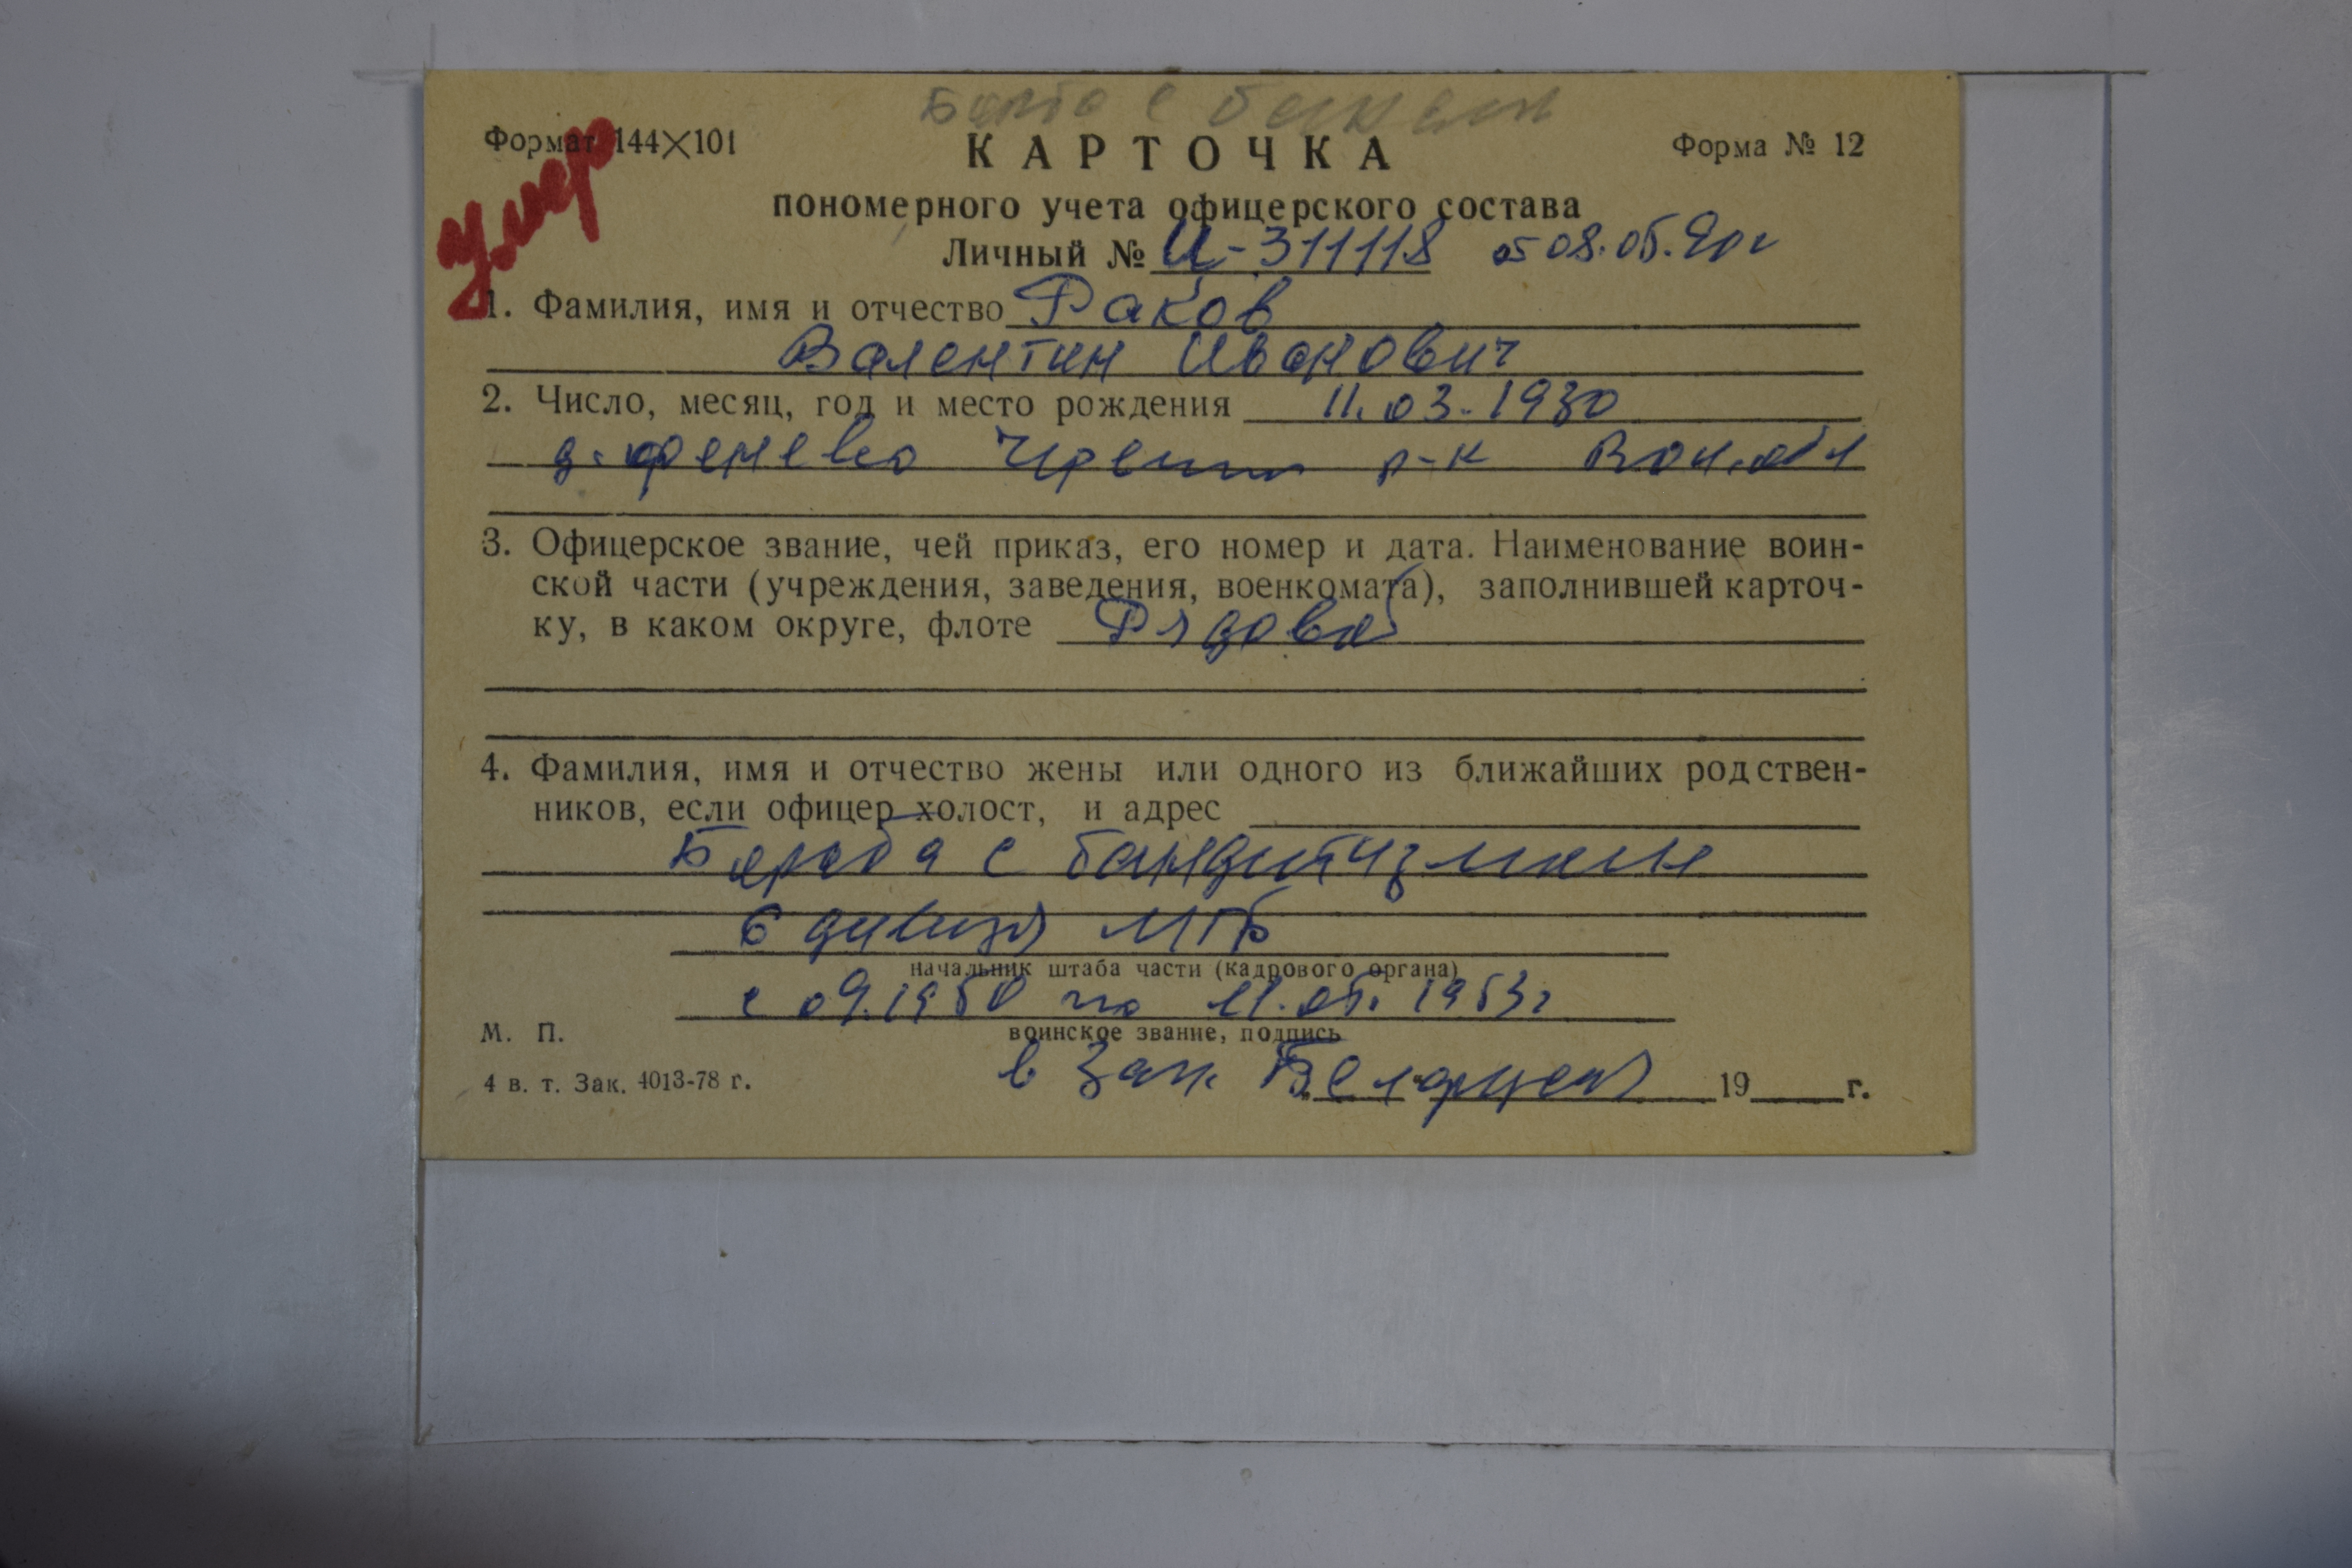 Борьба с
Формат 144×101
умер
КАРТОЧКА
Форма № 12
пономерного учета офицерского состава
Личный № И-311118 от 08.05.90г
1. Фамилия, имя и отчество Раков
Валентин Иванович
2. Число, месяц, год и место рождения 11.03.1930
д. р-н обл
3. Офицерское звание, чей приказ, его номер и дата. Наименование воин-
ской части (учреждения, заведения, военкомата), заполнившей карточ-
ку, в каком округе, флоте Рядовой
4. Фамилия, имя и отчество жены или одного из ближайших родствен-
ников, если офицер холост, и адрес
Борьба с бандитизмом
6 дивизия МГБ
начальник штаба части (кадрового органа)
с 09.1950 по 11.05.1953г
М. П.
воинское звание, подпись
в Зап. Белоруссии
4 в. т. Зак. 4013-78 г.
19 г.